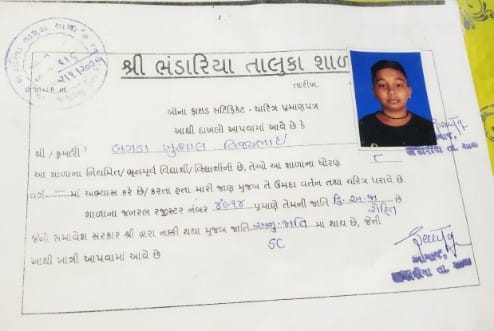 શ્રી ભંડારિયા તાલુકા શાળા
તારીખ.
જાવક નં
બોના ફાઇડ સર્ટિફિકેટ - ચારિત્ર પ્રમાણપત્ર
આથી દાખલો આપવામાં આવે છે કે
શ્રી / કુમારી
આ શાળાના નિયમિત/ ભૂતપૂર્વ વિદ્યાર્થી/ વિદ્યાર્થીની છે, તેઓ આ શાળાના ધોરણ ૮
વર્ગ - માં અભ્યાસ કરે છે/ કરતા હતા. મારી જાણ મુજબ તે ઉમદા વર્તન તથા ચરિત્ર ધરાવે છે.
શાળાના જનરલ રજીસ્ટર નંબર પ્રમાણે તેમની જાતિ હિ. અ.જા છે
રોહિત
જેનો સમાવેશ સરકાર શ્રી દ્વારા નક્કી થયા મુજબ જાતિ અનુ.જાતિ માં થાય છે, જેની
SC
આથી ખાત્રી આપવામાં આવે છે